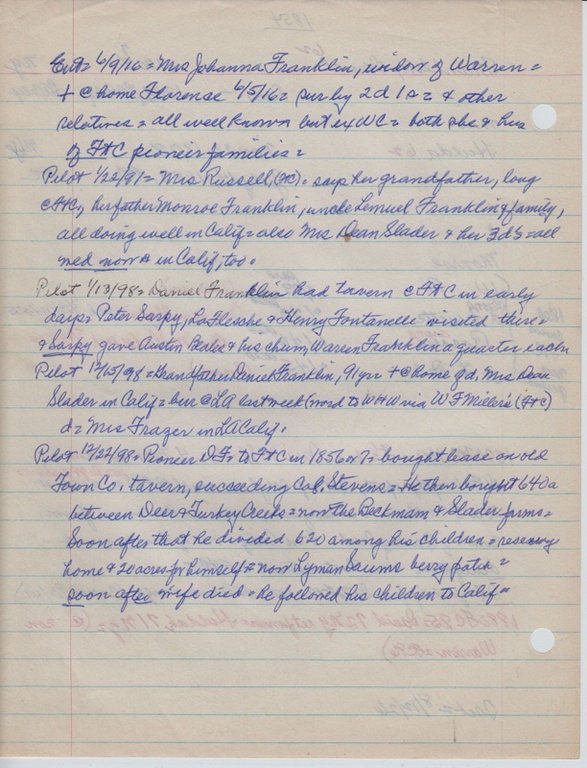 Ent= 4/9/16= Mrs Johanna Franklin, widow of Warren=
+ @ home Florence 4/5/16= sur by 2d 1s= & other
relatives= all well known but ex WC= both she & hus
of FtC pioneer families=
Pilot 1/22/91= Mrs Russell, (FtC)= says her grandfather, long
@ FtC, her father Monroe Franklin, uncle Lemuel Franklin & family,
all doing well in Calif= also Mrs Dean Slader & her 3d's= all
med now & in Calif, too=
Pilot 1/13/98= Daniel Franklin had tavern @ FtC in early
days= Peter Sarpy, LaFlesche & Henry Fontanelle visited there=
& Sarpy gave Austin & his chum, Warren Franklin a quarter each=
Pilot 12/15/98= Grandfather Daniel Franklin, 91yr + @ home of d, Mrs Dean
Slader in Calif= bur @ LA last week (word to WHW via WF Miller's (FtC)
d= Mrs Frazer in LA Calif=
Pilot 12/22/98= Pioneer D.F. to FtC in 1856 or 7= bought lease on old
Town Co. tavern, succeeding Col. Stevens= He then bought 640a
between Deer & Turkey Creeks= now the Beckman & Slader farms=
Soon after that he divided 620 among his children= reserving
home & 20 acres for himself= now Lyman Saums berry patch=
soon after wife died= he followed his children to Calif=